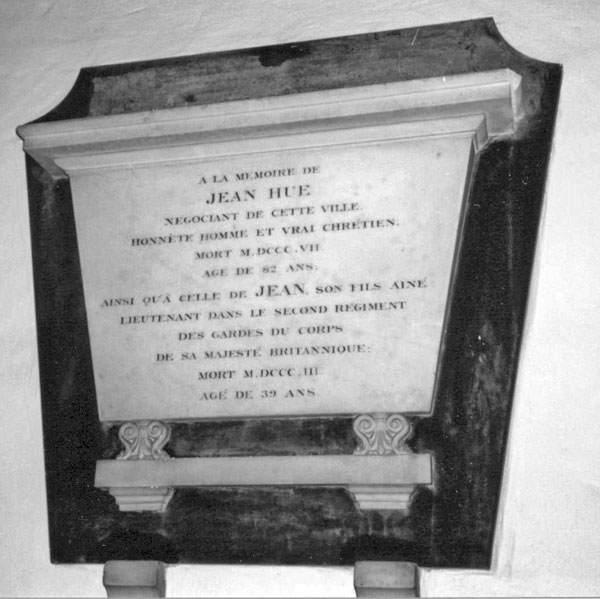 A LA MEMOIRE DE
JEAN HUE
NEGOCIANT DE CETTE VILLE.
HONNÊTE HOMME ET VRAI CHRÉTIEN.
MORT M.DCCC.VII
AGÉ DE 82 ANS.
AINSI QU'À CELLE DE JEAN, SON FILS AINÉ
LIEUTENANT DANS LE SECOND RÉGIMENT
DES GARDES DU CORPS
DE SA MAJESTÉ BRITANNIQUE:
MORT M.DCCC.III
AGÉ DE 39 ANS.